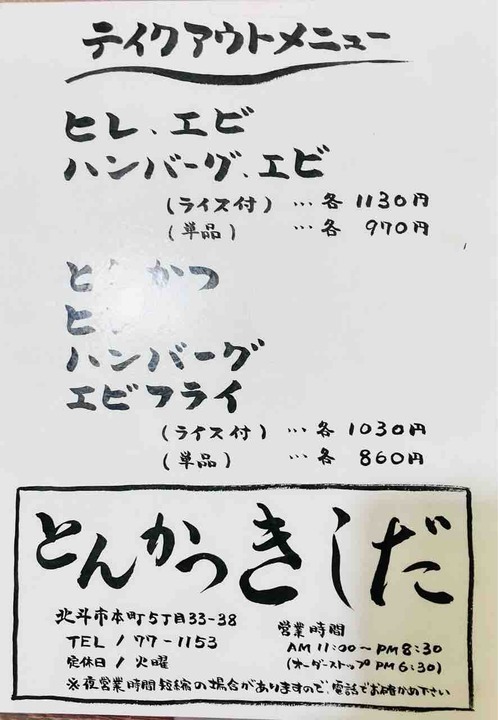 テイクアウトメニュー
ヒレ、エビ
ハンバーグ、エビ
(ライス付) … 各 1130円
(単品) … 各 970円
とんかつ
ヒレ
ハンバーグ
エビフライ
(ライス付) … 各 1030円
(単品) … 各 860円
とんかつきしだ
北斗市本町5丁目33-38
TEL / 77-1153
定休日 / 火曜
営業時間
AM 11:00〜PM 8:30
(オーダーストップPM 6:30)
※夜営業時間短縮の場合がありますので、電話でお確かめ下さい